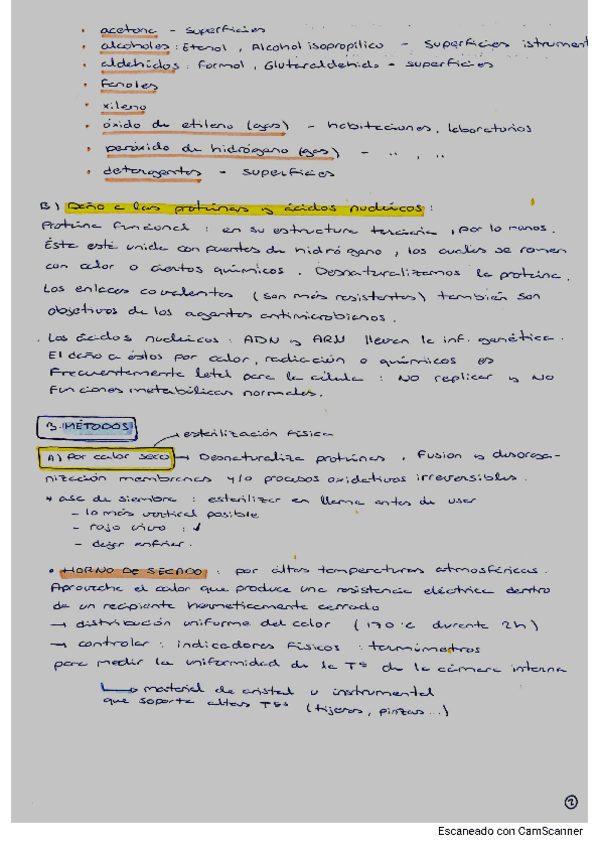 • acetona - superficies
• alcoholes : Etanol , Alcohol isopropílico - superficies istrument
• aldehidos : Formol , Glutaraldehido - superficies
• Fenoles
• xileno
• óxido de etileno (gas) - habitaciones, laboratorios
• peróxido de hidrógeno (gas) - " , "
• detergentes - superficies
B) Daño a las proteínas y ácidos nucleicos :
Proteína funcional : en su estructura terciaria , por lo menos.
Ésta está unida con puentes de hidrógeno , los cuales se romen
con calor o ciertos químicos . Desnaturalizamos la proteína.
Los enlaces covalentes (son más resistentes) también son
objetivos de los agentes antimicrobianos .
. Los ácidos nucleicos : ADN y ARN llevan la inf. genética .
El daño a éstos por calor, radiación o químicos es
Frecuentemente letal para la célula : NO replicar y NO
funciones metabólicas normales.
3. MÉTODOS
→ esterilización física
A) por calor seco → Desnaturaliza proteínas , Fusion y desorga-
nización membranas y/o procesos oxidativos irreversibles.
* asa de siembra : esterilizar en llama antes de usar
- lo más vertical posible
- rojo vivo : ✓
- dejar enfriar.
• HORNO DE SECADO : por altas temperaturas atmosféricas.
Aprovecha el calor que produce una resistencia eléctrica dentro
de un recipiente hermeticamente cerrado
→ distribución uniforme del calor (170°c durante 2h)
→ controlar : indicadores Físicos : termómetros
para medir la uniformidad de la Tª de la cámara interna
↳ material de cristal u instrumental
que soporta altas Tªs (tijeras, pinzas...)
2
Escaneado con CamScanner